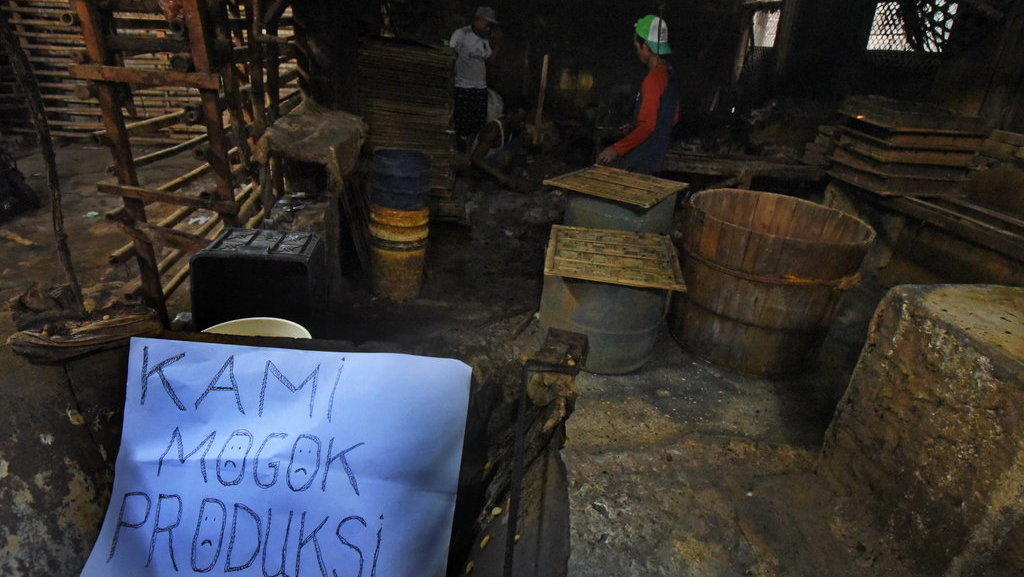 KAMi
MOGOK
PRODUKSi